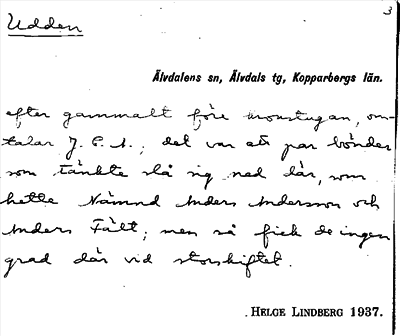 3
Udden
Älvdalens sn, Älvdals tg, Kopparbergs län.
efter gammalt före monstugan, om-
talar J. E. A.; det var ett par bönder
som tänkte slå sig ned där, som
hette Nämnd Anders Andersson och
Anders Fält; men så fick de ingen
grad där vid storskiftet.
HELGE LINDBERG 1937.